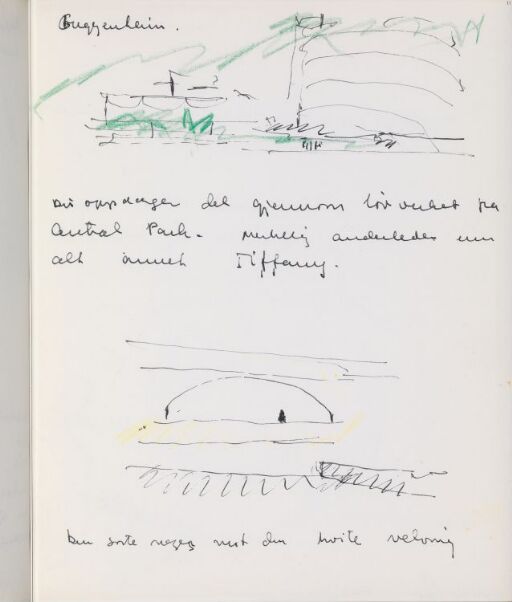 Guggenheim.
du oppdager det gjennom løvverket fra
Central Park. merkelig anderledes enn
alt annet Tiffany.
den sorte neger mot den hvite velving